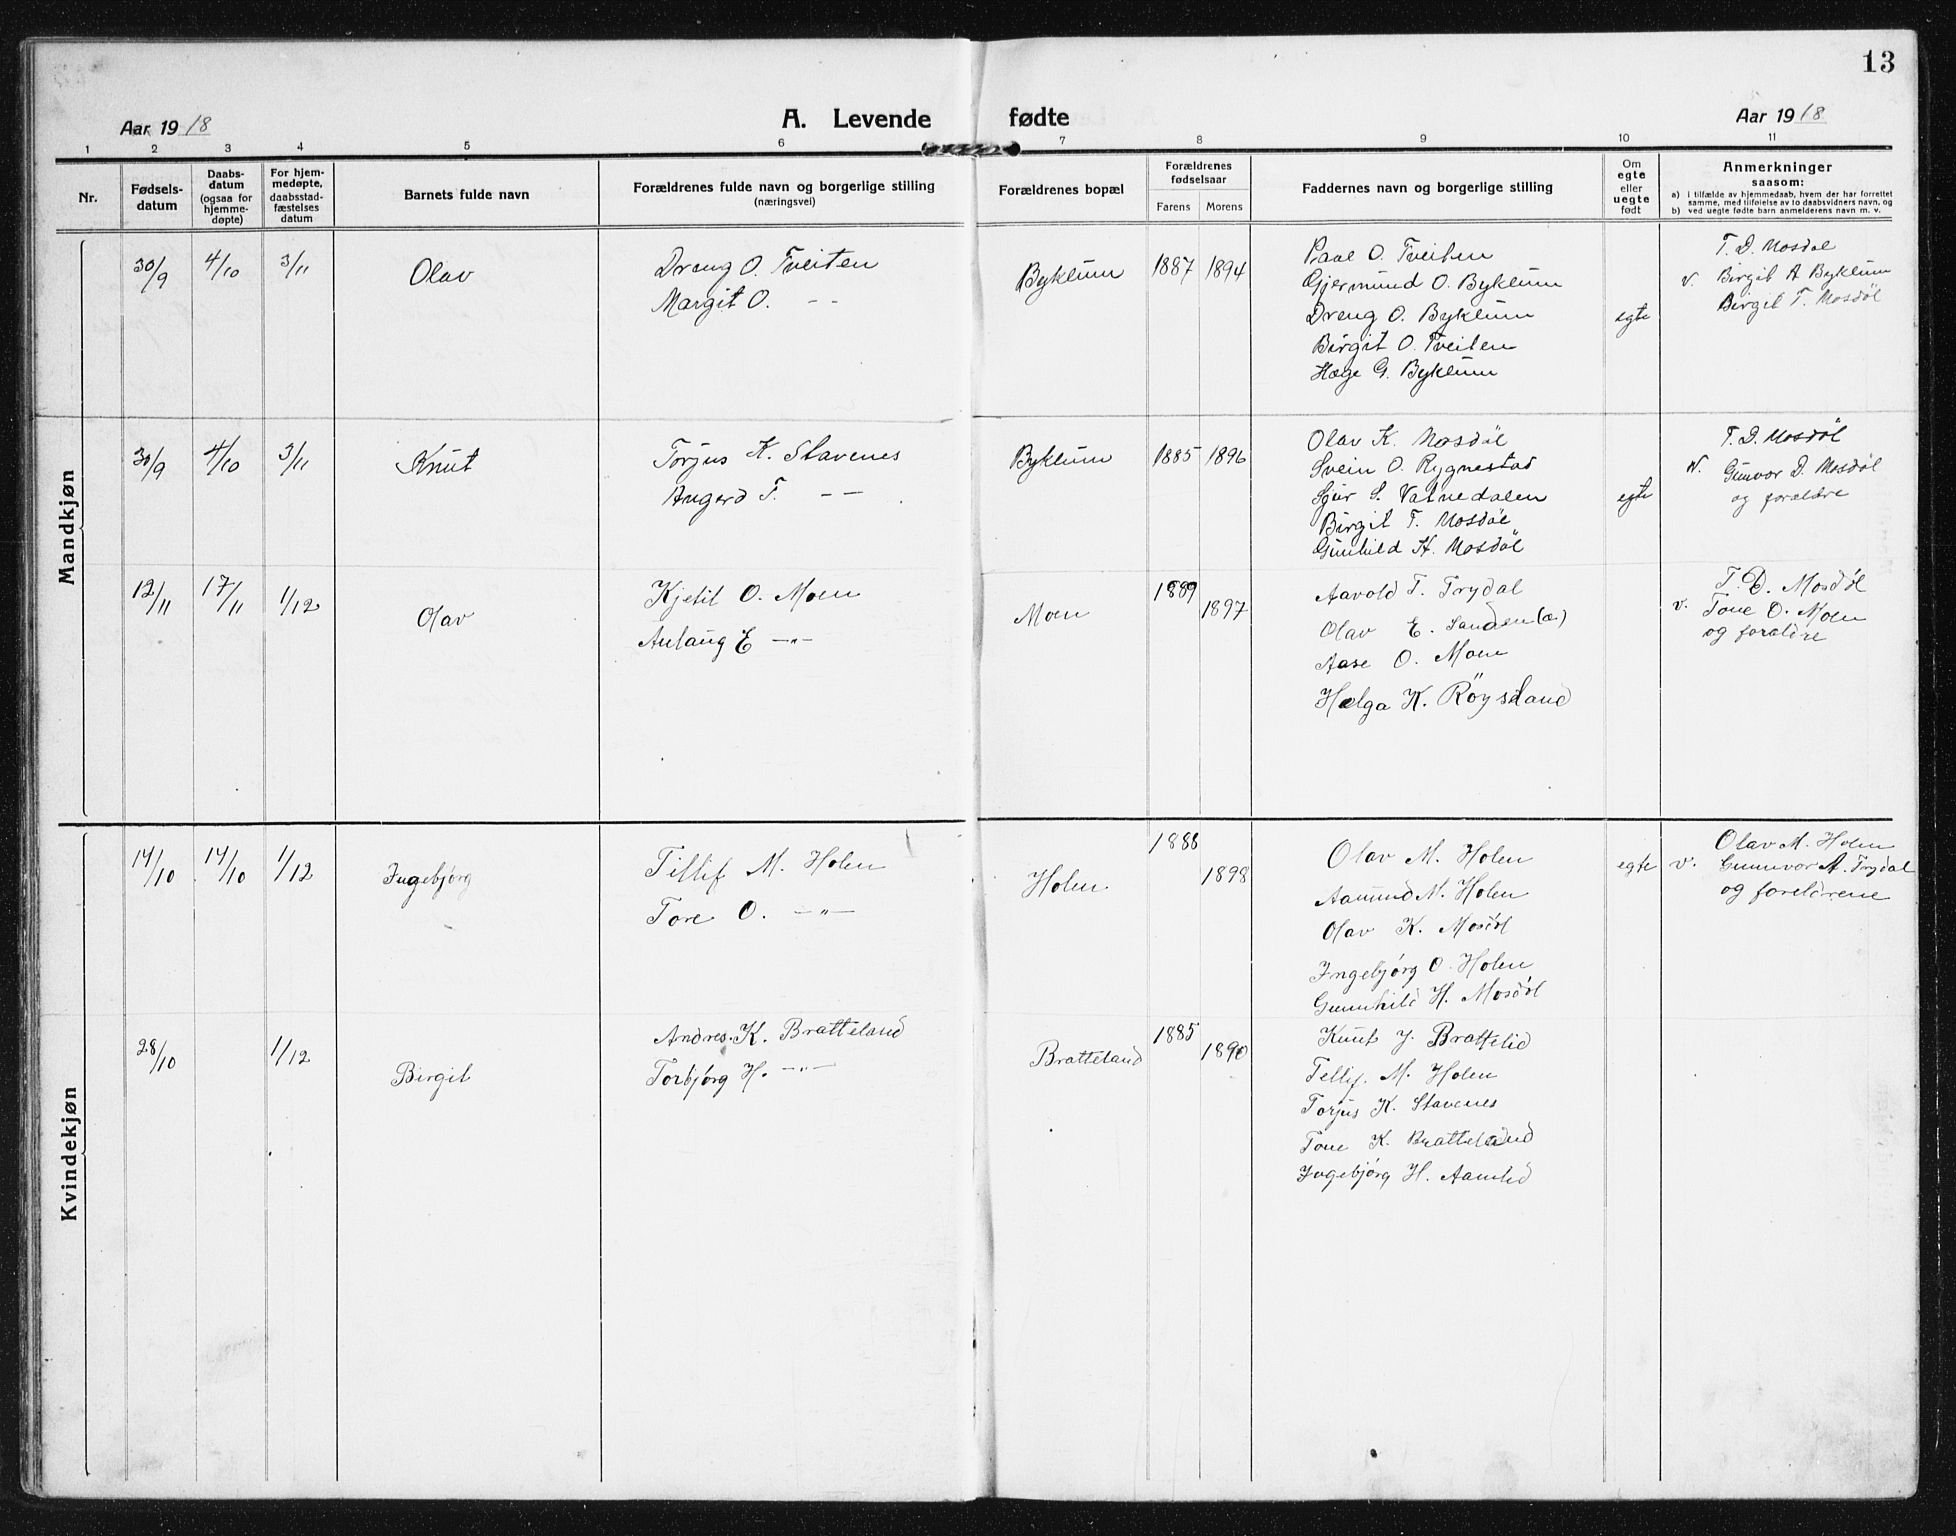 13
Aar 1918
A. Levende fødte
Aar 1918
1 2 3 4 5 6 7 8 9 10 11
Nr.
Fødsels-
datum
Daabs-
datum
(ogsaa for
hjemme-
døpte)
For hjem-
medøpte,
daabsstad-
fæstelses
datum
Barnets fulde navn
Forældrenes fulde navn og borgerlige stilling
(næringsvei)
Forældrenes bopæl
Forældrenes
fødselsaar
Farens Morens
Faddernes navn og borgerlige stilling
Om
egte
eller
uegte
født
Anmerkninger
saasom:
a) i tilfælde av hjemmedaab, hvem der har forrettet
samme, med tilføielse av to daabsvidners navn, og
b) ved uegte fødte barn anmelderens navn m. v.
Mandkjøn
30/9 4/10 3/11 Olav
Dreng O. Tveiten
Margit O. – –
Byklum 1887 1894
Paal O. Tveiten
Gjermund O. Byklum
Dreng O. Byklum
Birgit O. Tveiten
Hæge G. Byklum
egte
T. D. Mosdøl
v. Birgit A Byklum
Birgit T. Mosdøl
30/9 4/10 3/11 Knut
Torjus K. Stavenes
Angerd T. – –
Byklum 1885 1896
Olav K. Mosdøl
Svein O. Rygnestad
Sjur S. Vatnedalen
Birgit T. Mosdøl
Gunhild H. Mosdøl
egte
T. D. Mosdøl
v. Gunvor D. Mosdøl
og forældre
12/11 17/11 1/12 Olav
Kjetil O. Moen
Anlaug E –"–
Moen 1889 1897
Aavold T. Trydal
Olav E. Sanden (æ)
Aase O. Moen
Helga K. Röysland
T. D. Mosdøl
v. Tone O. Moen
og forældre
Kvindekjøn
14/10 14/10 1/12 Ingebjørg
Tillif M. Holen
Tore O. –"–
Holen 1888 1898
Olav M. Holen
Aamund M. Holen
Olav K. Mosdøl
Ingebjørg O. Holen
Gunnhild H. Mosdøl
egte
Olav M. Holen
v. Gunnvor A. Trydal
og foreldrene
28/10 1/12 Birgit
Andres K. Bratteland
Torbjørg H. –"–
Bratteland 1885 1890
Knut J. Brattelid
Tellif M. Holen
Torjus K. Stavenes
Tone K. Bratteland
Ingebjørg H. Aamlid